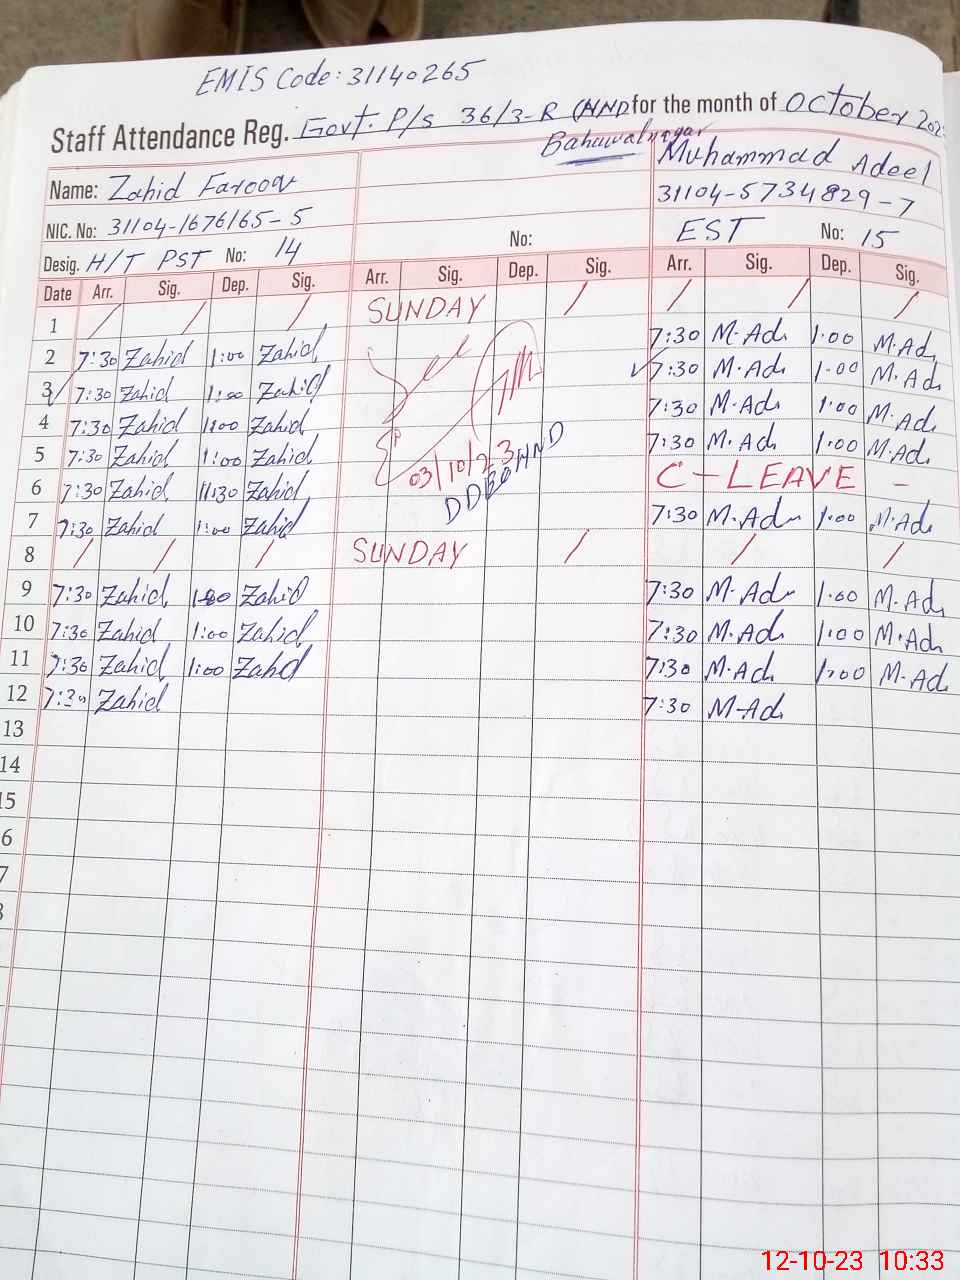 EMIS Code: 31140265
Staff Attendance Reg. Govt. P/s 36/3-R (HND for the month of October 202
Bahawalnagar
Name: Zahid Farooq
Muhammad Adeel
NIC. No: 31104-1676165-5
31104-5734829-7
Desig. H/T PST No: 14 No: EST No: 15
Date Arr. Sig. Dep. Sig. Arr. Sig. Dep. Sig. Arr. Sig. Dep. Sig.
1 / / / SUNDAY / / / /
2 7:30 Zahid 1:00 Zahid 7:30 M.Ad 1:00 M.Ad
3 7:30 Zahid 1:00 Zahid 7:30 M.Ad 1:00 M.Ad
4 7:30 Zahid 1:00 Zahid 7:30 M.Ad 1:00 M.Ad
5 7:30 Zahid 1:00 Zahid 7:30 M.Ad 1:00 M.Ad
03/10/23
DDEO HND
6 7:30 Zahid 11:30 Zahid C-LEAVE -
7 7:30 Zahid 1:00 Zahid 7:30 M.Ad 1:00 M.Ad
8 / / / SUNDAY / / /
9 7:30 Zahid 1:00 Zahid 7:30 M.Ad 1:00 M.Ad
10 7:30 Zahid 1:00 Zahid 7:30 M.Ad 1:00 M.Ad
11 7:30 Zahid 1:00 Zahd 7:30 M.Ad 1:00 M.Ad
12 7:30 Zahid 7:30 M-Ad
13
14
15
6
7
12-10-23 10:33